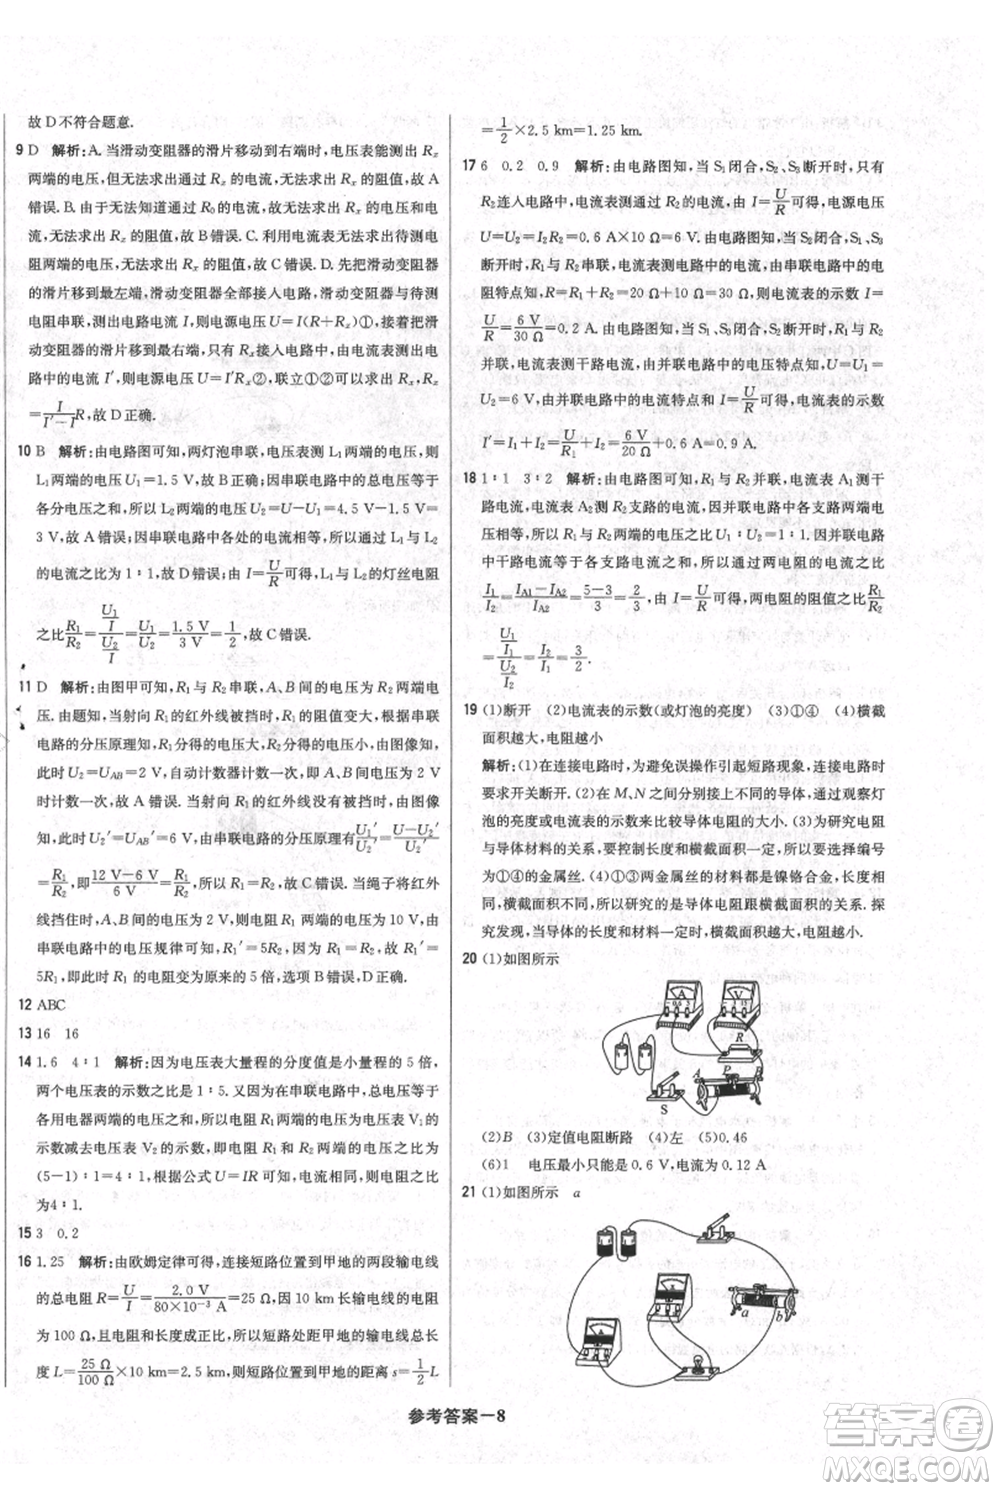 故 D 不符合题意.
9 D 解析:A. 当滑动变阻器的滑片移动到右端时,电压表能测出 Rₓ
两端的电压,但无法求出 Rₓ 的电流,无法求出 Rₓ 的阻值,故 A
错误. B. 由于无法知道 R₀ 的电流,无法求出 Rₓ 的电压和电
流,无法求出 Rₓ 的阻值,故 B 错误. C. 利用电流表无法求出电
阻两端的电压,无法求出 Rₓ 的阻值,故 C 错误. D. 先把滑动变阻器
的滑片移到最左端,滑动变阻器全部接入电路,滑动变阻器与待测
电阻串联,测出电路电流 I,则电源电压 U=I(R+Rₓ)①,接着把滑
动变阻器的滑片移到最右端,只有 Rₓ 单独接入电路,测出此时电
路中的电流 I′,则电源电压 U=I′Rₓ②,联立①②可以求出 Rₓ
=I/(I′-I)R,故 D 正确.
10 B 解析:由电路图可知,两灯泡串联,电压表测 L₁ 两端的电压,则
L₁ 两端的电压 U₁=1.5 V,故 A 错误;因串联电路中的总电压等于
各分电压之和,所以 L₂ 两端的电压 U₂=U-U₁=4.5 V-1.5 V
=3 V,故 B 正确;因串联电路中各处的电流相等,所以通过 L₁ 和 L₂
的电流之比为 1∶1,故 D 错误;由 I=U/R可知,两灯的灯丝电阻
之比R₁/R₂=(U₁/I)/(U₂/I)=U₁/U₂=1.5 V/3 V=1/2,故 C 错误.
11 D 解析:由图甲可知,R₁ 与 R₂ 串联,A、B 间的电压为 R₂ 两端电
压.由题知,当射向 R₁ 的红外线被挡时,R₁ 的阻值变大,根据串联
电路的分压原理知,R₁ 分得的电压大,R₂ 分得的电压小,由图像知,
此时 U₂=U_AB=2 V,自动计数器计数一次,即 A、B 间电压为 2 V
时计数一次,故 A 错误.当射向 R₁ 的红外线没有被挡时,由图像
知,此时 U₂′=U_AB′=6 V,由串联电路的分压原理有U₁′/U₂′=(U-U₂′)/U₂′
=R₁/R₂,即(12 V-6 V)/6 V=R₁/R₂,所以 R₁=R₂,故 C 错误.当绳子将红外
线挡住时,A、B 间的电压为 2 V,则电阻 R₁ 两端的电压为 10 V,由
串联电路中的电压规律可知,R₁′=5R₂,因为 R₁=R₂,所以 R₁′=
5R₁,所以此时 R₁ 的电阻变为原来的 5 倍,选项 B 错误,D 正确.
12 ABC
13 16 16
14 1.6 4∶1 解析:因为电压表大量程的分度值是小量程的 5 倍,
两个电压表的示数之比是 1∶5.又因为在串联电路中,总电压等于
各用电器两端的电压之和,所以电阻 R₁ 两端的电压为电压表 V₁ 的
示数减去电压表 V₂ 的示数,即电阻 R₁ 与 R₂ 两端的电压之比为
(5-1)∶1=4∶1,根据公式 U=IR 可知,电阻 R₁ 与 R₂ 的阻值之比
为4∶1.
15 3 0.2
16 1.25 解析:由欧姆定律可得,连接短路位置到甲地的两段输电线
的总电阻 R=U/I=2.0 V/(80×10⁻³ A)=25 Ω,因 10 km长输电线的电阻
为 100 Ω,且电阻和长度成正比,所以短路处距甲地的输电线总长
度 L=25 Ω/100 Ω×10 km=2.5 km,则短路位置到甲地的距离 s=1/2 L
=1/2×2.5 km=1.25 km.
17 6 0.2 0.9 解析:由电路图知,当 S₁ 闭合,S₂、S₃ 断开时,只有
R₂ 连入电路中,电流表测电路中的电流,由 I=U/R可得,电源电压
U=U₂=IR₂=0.6 A×10 Ω=6 V.由电路图知,当 S₂ 闭合,S₁、S₃
断开时,R₁ 与 R₂ 串联,电流表测电路中的电流,由串联电路中的电
阻特点知,R=R₁+R₂=20 Ω+10 Ω=30 Ω,电流表的示数 I=
U/R=6 V/30 Ω=0.2 A.由电路图知,当 S₁、S₃ 闭合,S₂ 断开时,两电阻
并联,电流表测干路电流,由并联电路中的电压特点知,U=U₁=
U₂=6 V,由并联电路中的电流特点和 I=U/R可得,电流表的示数
I′=I₁+I₂=U/R₁+I₂=6 V/20 Ω+0.6 A=0.9 A.
18 1∶1 3∶2 解析:由电路图可知,R₁ 与 R₂ 并联,电流表 A₁ 测干
路电流,电流表 A₂ 测 R₂ 支路的电流,因并联电路中各支路两端的电
压相等,所以 R₁ 与 R₂ 两端的电压之比 U₁∶U₂=1∶1.因并联电路
中干路电流等于各支路电流之和,所以通过两电阻的电流之比
I₁/I₂=(I_A1-I_A2)/I_A2=(5-3)/3=2/3,由 I=U/R可得,两电阻的阻值之比 R₁/R₂
=(U₁/I₁)/(U₂/I₂)=I₂/I₁=3/2.
19 (1)断开 (2)电流表的示数(或灯泡的亮度) (3)①④ (4)横截
面积越大,电阻越小
解析:(1)在连接电路时,为避免误操作引起短路现象,连接电路时
要求开关断开.(2)在 M、N 之间分别接上不同的导体,通过观察灯
泡的亮度或电流表的示数来比较导体电阻的大小.(3)为研究电阻
与导体材料的关系,要控制长度和横截面积一定,所以要选择编号
为①④的金属丝.(4)①③两金属丝的材料都是镍铬合金,长度相
同,横截面积不同,所以研究的是导体电阻跟横截面积的关系.探
究发现,当导体的长度和材料一定时,横截面积越大,电阻越小.
20 (1)如图所示
A V
R
A P B
S
(2)B (3)定值电阻断路 (4)左 (5)0.46
(6)1 电压最小只能是 0.6 V,电流为 0.12 A
21 (1)如图所示 a
a b
参考答案—8
答案圈
MXQE.COM